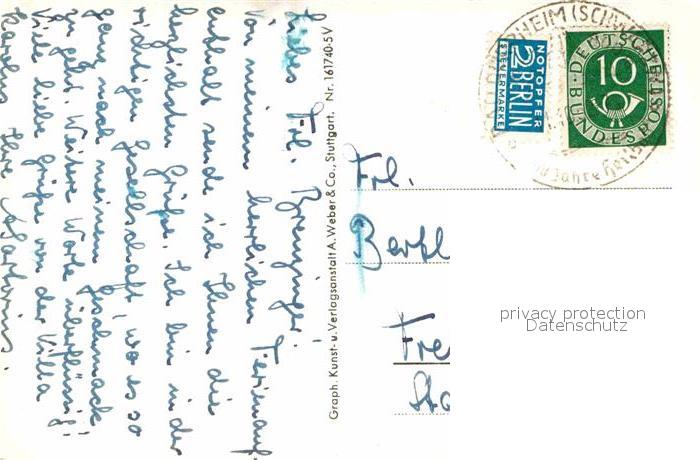 Liebes Frl. Breuninger!
Von meinem herrlichen Ferienauf-
enthalt sende ich Ihnen die
herzlichsten Grüße. Ich bin in der
richtigen Gesellschaft, wo es so
ganz nach meinem Geschmack
zu geht. Weitere Worte überflüssig!
Viele liebe Grüße von der Villa
Ihre
Graph. Kunst- u. Verlagsanstalt A. Weber & Co., Stuttgart. Nr. 161740-5V
NOTOPFER
2 BERLIN
STEUERMARKE
DEUTSCHE BUNDESPOST
10
HEIM (SCHW
Jahre
Frl.
Fre
privacy protection
Datenschutz